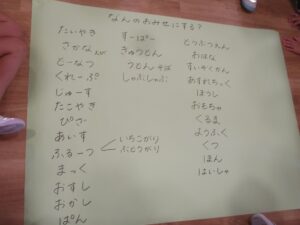 なんのおみせにする？
たいやき
さかな
どーなつ
くれーぷ
じゅーす
たこやき
ぴざ
あいす
ふるーつ
いちごがり
ぶどうがり
まっく
おすし
おかし
ぱん
すーぱー
ぎゅうどん
うどん そば
しゃぶしゃぶ
どうぶつえん
おはな
すいぞくかん
あすれちっく
ぼうし
おもちゃ
くるま
ようふく
くつ
ほん
はいしゃ